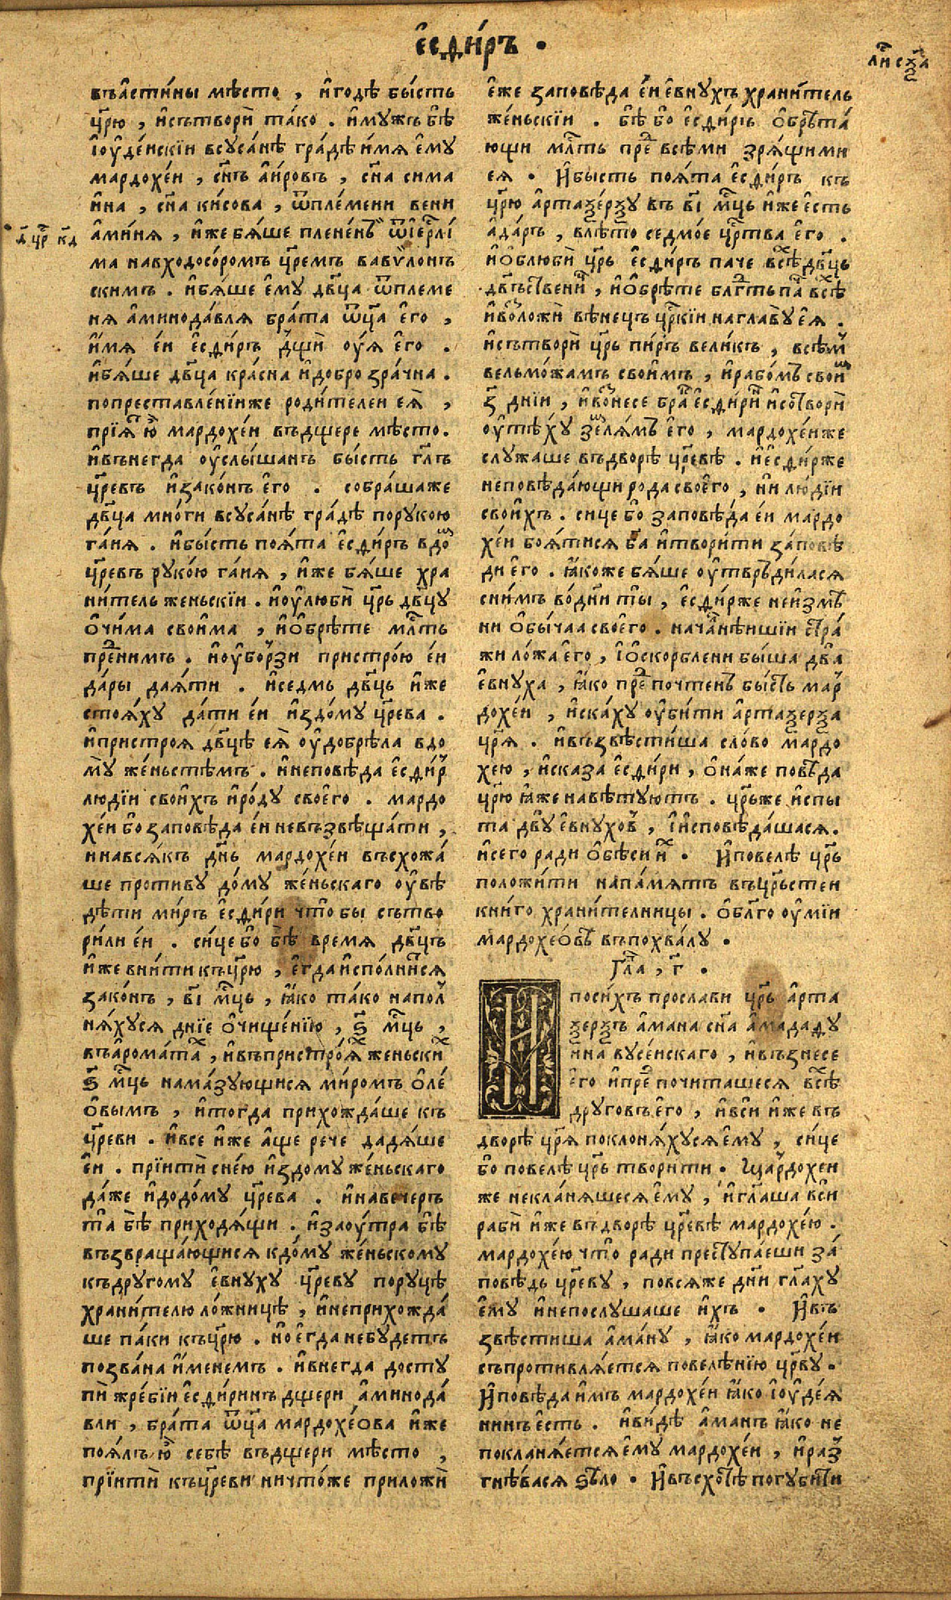 є҆сѳи́ръ .
въа҆сти́ны мѣсто , и҆годѣ бы́сть
цр҃ю , и҆сътвори̂ та́ко . и҆мужъ бѣ̂
і҆оу҆де́искїи всуса́нѣ гра́дѣ и҆́мѧ є҆му
мардохе́и , сн҃ъ а҆и́ровъ , сн҃а сима
и҆́на , сн҃а ки́сова , ѿпле́мени вени
а҆ми́нѧ , и҆́же бѧ́ше плене́нъ ѿі҆ерⷭ҇лі́
ма навходоно́соромъ цр҃емъ вавѷлонъ
скимъ . и҆бѧ́ше є҆му дв҃ца ѿплеме
нѧ а҆минода́влѧ бра́та ѿц҃а є҆го ,
и҆́мѧ є҆́и є҆сѳи́ръ дщи̂ оу҆ѧ є҆го .
и҆бѧ́ше дв҃ца кра́сна и҆добро зра́чна .
попреставле́нїиже роди́телеи є҆ѧ̂ ,
прїѧ́тъ ю҆̂ мардохе́и въдщере мѣсто.
и҆въне́гда оу҆слы́шанъ бы́сть гл҃ъ
цр҃евъ и҆зако́нъ є҆го . собра́шаже
дв҃ца мно́ги всуса́нѣ гра́дѣ порукою
га́иѧ . и҆бы́сть поѧ́та є҆сѳи́ръ вдо́ⷨ
цр҃евъ руко́ю га́иѧ , и҆́же бѧ́ше хра
ни́тель женьскїи . и҆оу҆люби̂ цр҃ь дв҃цу
о҆чи́ма свои́ма , и҆о҆брѣ́те млⷭ҇ть
преⷣни́мъ . и҆оу҆бо́рзи пристро́ю є҆́и
да́ры даѧ́ти . и҆седмь дв҃ць и҆́же
стоѧ́ху да́ти є҆́и и҆здо́му цр҃ева .
и҆пристроѧ дв҃цѣ є҆ѧ̂ оу҆добрѣ́ла вдо
му же́ньстѣмъ . и҆неповѣ́да є҆сѳи́рь
лю́дїи свои́хъ и҆ро́ду своего̂ . мардо
хе́и бо заповѣ́да є҆́и невъзвѣща́ти ,
и҆навсѧ́къ дн҃ь мардохе́и въсхожа́
ше проти́ву до́му же́ньскаго оу҆вѣ́
дѣти ми́ръ є҆сѳи́ри что̂ бы сътво
ри́ли є҆́и . си́це бо бѣ̂ вре́мѧ дв҃цъ
и҆́же вни́ти къцр҃ю , є҆гда и҆спо́лнисѧ
зако́нъ , вı҃ мⷭ҇ць , ꙗ҆́ко та́ко напол
нѧ́хусѧ дні́е о҆чище́нїю , ѕ҃ мⷭ҇ць ,
въа҆рома́тахъ , и҆въпристро́ѧ́хъ женьскиⷯ
ѕ҃ мⷭ҇ць нама́зующисѧ ми́ромъ о҆ле́
о҆вымъ , и҆тогда прихожда́ше къ
цр҃еви . и҆все и҆́же а҆́ще рече дадѧ́ше
є҆́и . прїити̂ сне́ю и҆здому же́ньскаго
да́же и҆додо́му цр҃ева . и҆наве́черъ
та̂ бѣ̂ приходѧ́щи . и҆заоу́тра бѣ̂
възвраща́ющисѧ кдо́му же́ньскому
къдруго́му є҆внуху цр҃еву поруцѣ
храни́телю ло́жницѣ , и҆неприхожда́
ше па́ки къцр҃ю . но є҆гда небу́детъ
позва́на и҆́менемъ . и҆внегда досту
пи̂ жре́бїи є҆сѳи́ринъ дщери а҆минода́
вли , бра́та ѿц҃а мардохе́ова и҆́же
поѧ́лъ ю҆̂ себѣ въдщери мѣсто ,
прїити̂ къцр҃еви ничто́же приложи̂
лисⷮ сх҃а
д҃ црⷭ҇ кд҃
є҆́же заповѣ́да є҆́и є҆вну́хъ храни́тель
же́ньскїи . бѣ̂ бо є҆сѳи́рь о҆брѣта́
ющи млⷭ҇ть преⷣ всѣми зрѧ́щими
еѧ . И҆бы́сть поѧ́та є҆сѳи́ръ къ
цр҃ю а҆ртаѯе́рѯу въ вı҃ мⷭ҇ць и҆́же є҆сть
а҆да́ръ , влѣто седмо́е црⷭ҇тва є҆го .
и҆о҆блюби̂ цр҃ь є҆сѳи́ръ паче всѣⷯ дв҃ць
дв҃ьственыⷯ , и҆о҆брѣте блгⷣть паⷱ всѣⷯ
и҆возложи̂ вѣне́цъ црⷭ҇кїи наглаву є҆ѧ̂ .
и҆сътвори̂ цр҃ь пи́ръ вели́къ , всѣмъ
вельмо́жамъ свои́мъ , и҆рабо́мъ своиⷨ
з҃ днїи , и҆възнесе бра́къ є҆сѳи́ринъ и҆сотвори̂
оу҆тѣ́ху зе́млѧмъ є҆го , мардохе́иже
служаше въдворѣ цр҃евѣ . и҆є҆сѳи́рже
неповѣда́ющи ро́да своего̂ , ни лю́дїи
свои́хъ . сице бо заповѣ́да є҆́и мардо
хе́и боѧ́тисѧ бг҃а и҆твори́ти за́повѣ
ди є҆го . ꙗ҆́коже бѧ́ше оу҆твръди́ласѧ
сни́мъ во́дни ты̂ , є҆сѳи́рже неи҆змѣ
ни о҆бы́чаа своего̂ . нача́лнѣишїи стра́
жи ло́жа є҆го , і҆о҆скорблени бы́ша два
є҆внуха , ꙗ҆́ко преⷣпочте́нъ бы́сть мар
дохе́и , и҆ска́ху оу҆би́ти а҆ртаѯерѯа
цр҃ѧ . и҆възвѣсти́ша сло́во мардо
хею , и҆сказа̂ є҆сѳи́ри , о҆на́же повѣ́да
цр҃ю ꙗ҆́же навѣ́туютъ . цр҃ьже и҆спы
та̂ дву̂ є҆внухо́въ , і҆и҆сповѣ́дашасѧ.
и҆сего̂ ра́ди о҆бѣ́си иⷯ . И҆повелѣ цр҃ь
положи́ти напа́мѧть въцрⷭ҇ьстеи
книго храни́телницы . о҆блго оу҆мїи
мардохеовѣ въпохва́лу .
Гла҃ , г҃ .
И посиⷯхъ просла́ви цр҃ь а҆рта
ѯерѯъ а҆ма́на сн҃а а҆мада́ѳу
и҆на вуге́искаго , и҆възнесе
є҆го и҆преⷣ почита́шесѧ всѣⷯ
друго́въ є҆го , и҆вси и҆́же въ
дворѣ цр҃ѧ поклонѧ́хусѧ є҆му , си́це
бо повелѣ̂ цр҃ь твори́ти . Мардохеи
же некла́нѧшесѧ є҆му , и҆гла҃ша вси
раби̂ и҆́же въдворѣ цр҃евѣ мардохе́ю .
мардохе́ю что̂ ра́ди преступа́еши за́
повѣдь цр҃еву , повсѧ́же дни гла҃ху
є҆му и҆непослушаше и҆хъ . И҆въ
звѣсти́ша а҆ма́ну , ꙗ҆́ко мардохе́и
съпротивлѧ́етсѧ повелѣ́нїю цр҃ву .
И҆повѣ́да и҆мъ мардохе́и ꙗ҆́ко і҆оу҆де́ѧ
нинъ є҆сть . и҆ви́дѣ а҆ма́нъ ꙗ҆́ко не
покланѧ́етсѧ є҆му мардохе́и , и҆раз
гнѣ́васѧ ѕѣло . И҆въсхотѣ погуби́ти